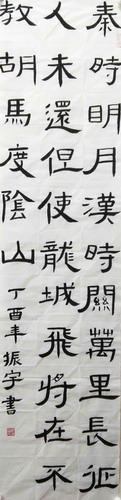 秦時明月漢時關萬里長征
人未還但使龍城飛將在不
教胡馬度陰山
丁酉年振宇書